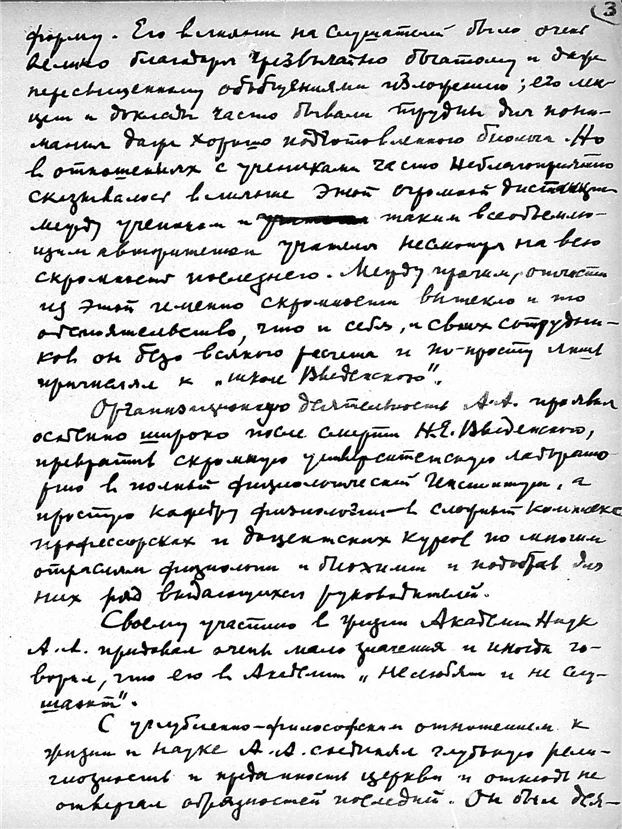 3
форму. Его влияние на слушателей было очень
велико благодаря чрезвычайно богатому и даже
пересыщенному обобщениями изложению; его лек-
ции и доклады часто бывали трудны для пони-
мания даже хорошо подготовленного биолога. Но
в отношениях с учениками часто неблагоприятно
сказывалось влияние этой огромной дистанции
между учеником и таким всеобъемлю-
щим авторитетом учителя несмотря на всю
скромность последнего. Между прочим, отчасти
из этой именно скромности вытекло и то
обстоятельство, что и себя, и своих сотрудни-
ков он безо всякого расчета и по-просту лишь
причислял к „школе Введенского".
Организационную деятельность А.А. проявил
особенно широко после смерти Н.Е. Введенского,
превратив скромную университетскую лаборато-
рию в полный физиологический Институт, а
простую кафедру физиологии – в сложный комплекс
профессорских и доцентских курсов по многим
отраслям физиологии и биохимии и подобрав для
них ряд выдающихся руководителей.
Своему участию в жизни Академии Наук
А.А. придавал очень мало значения и иногда го-
ворил, что его в Академии „не любят и не слу-
шают".
С углубленно-философским отношением к
жизни и науке А.А. соединял глубокую рели-
гиозность и преданность церкви и отнюдь не
отвергал обрядностей последней. Он был дея-